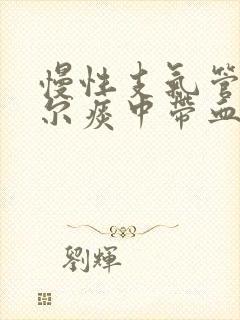 慢性支氣管
尔痰中帶血
劉輝